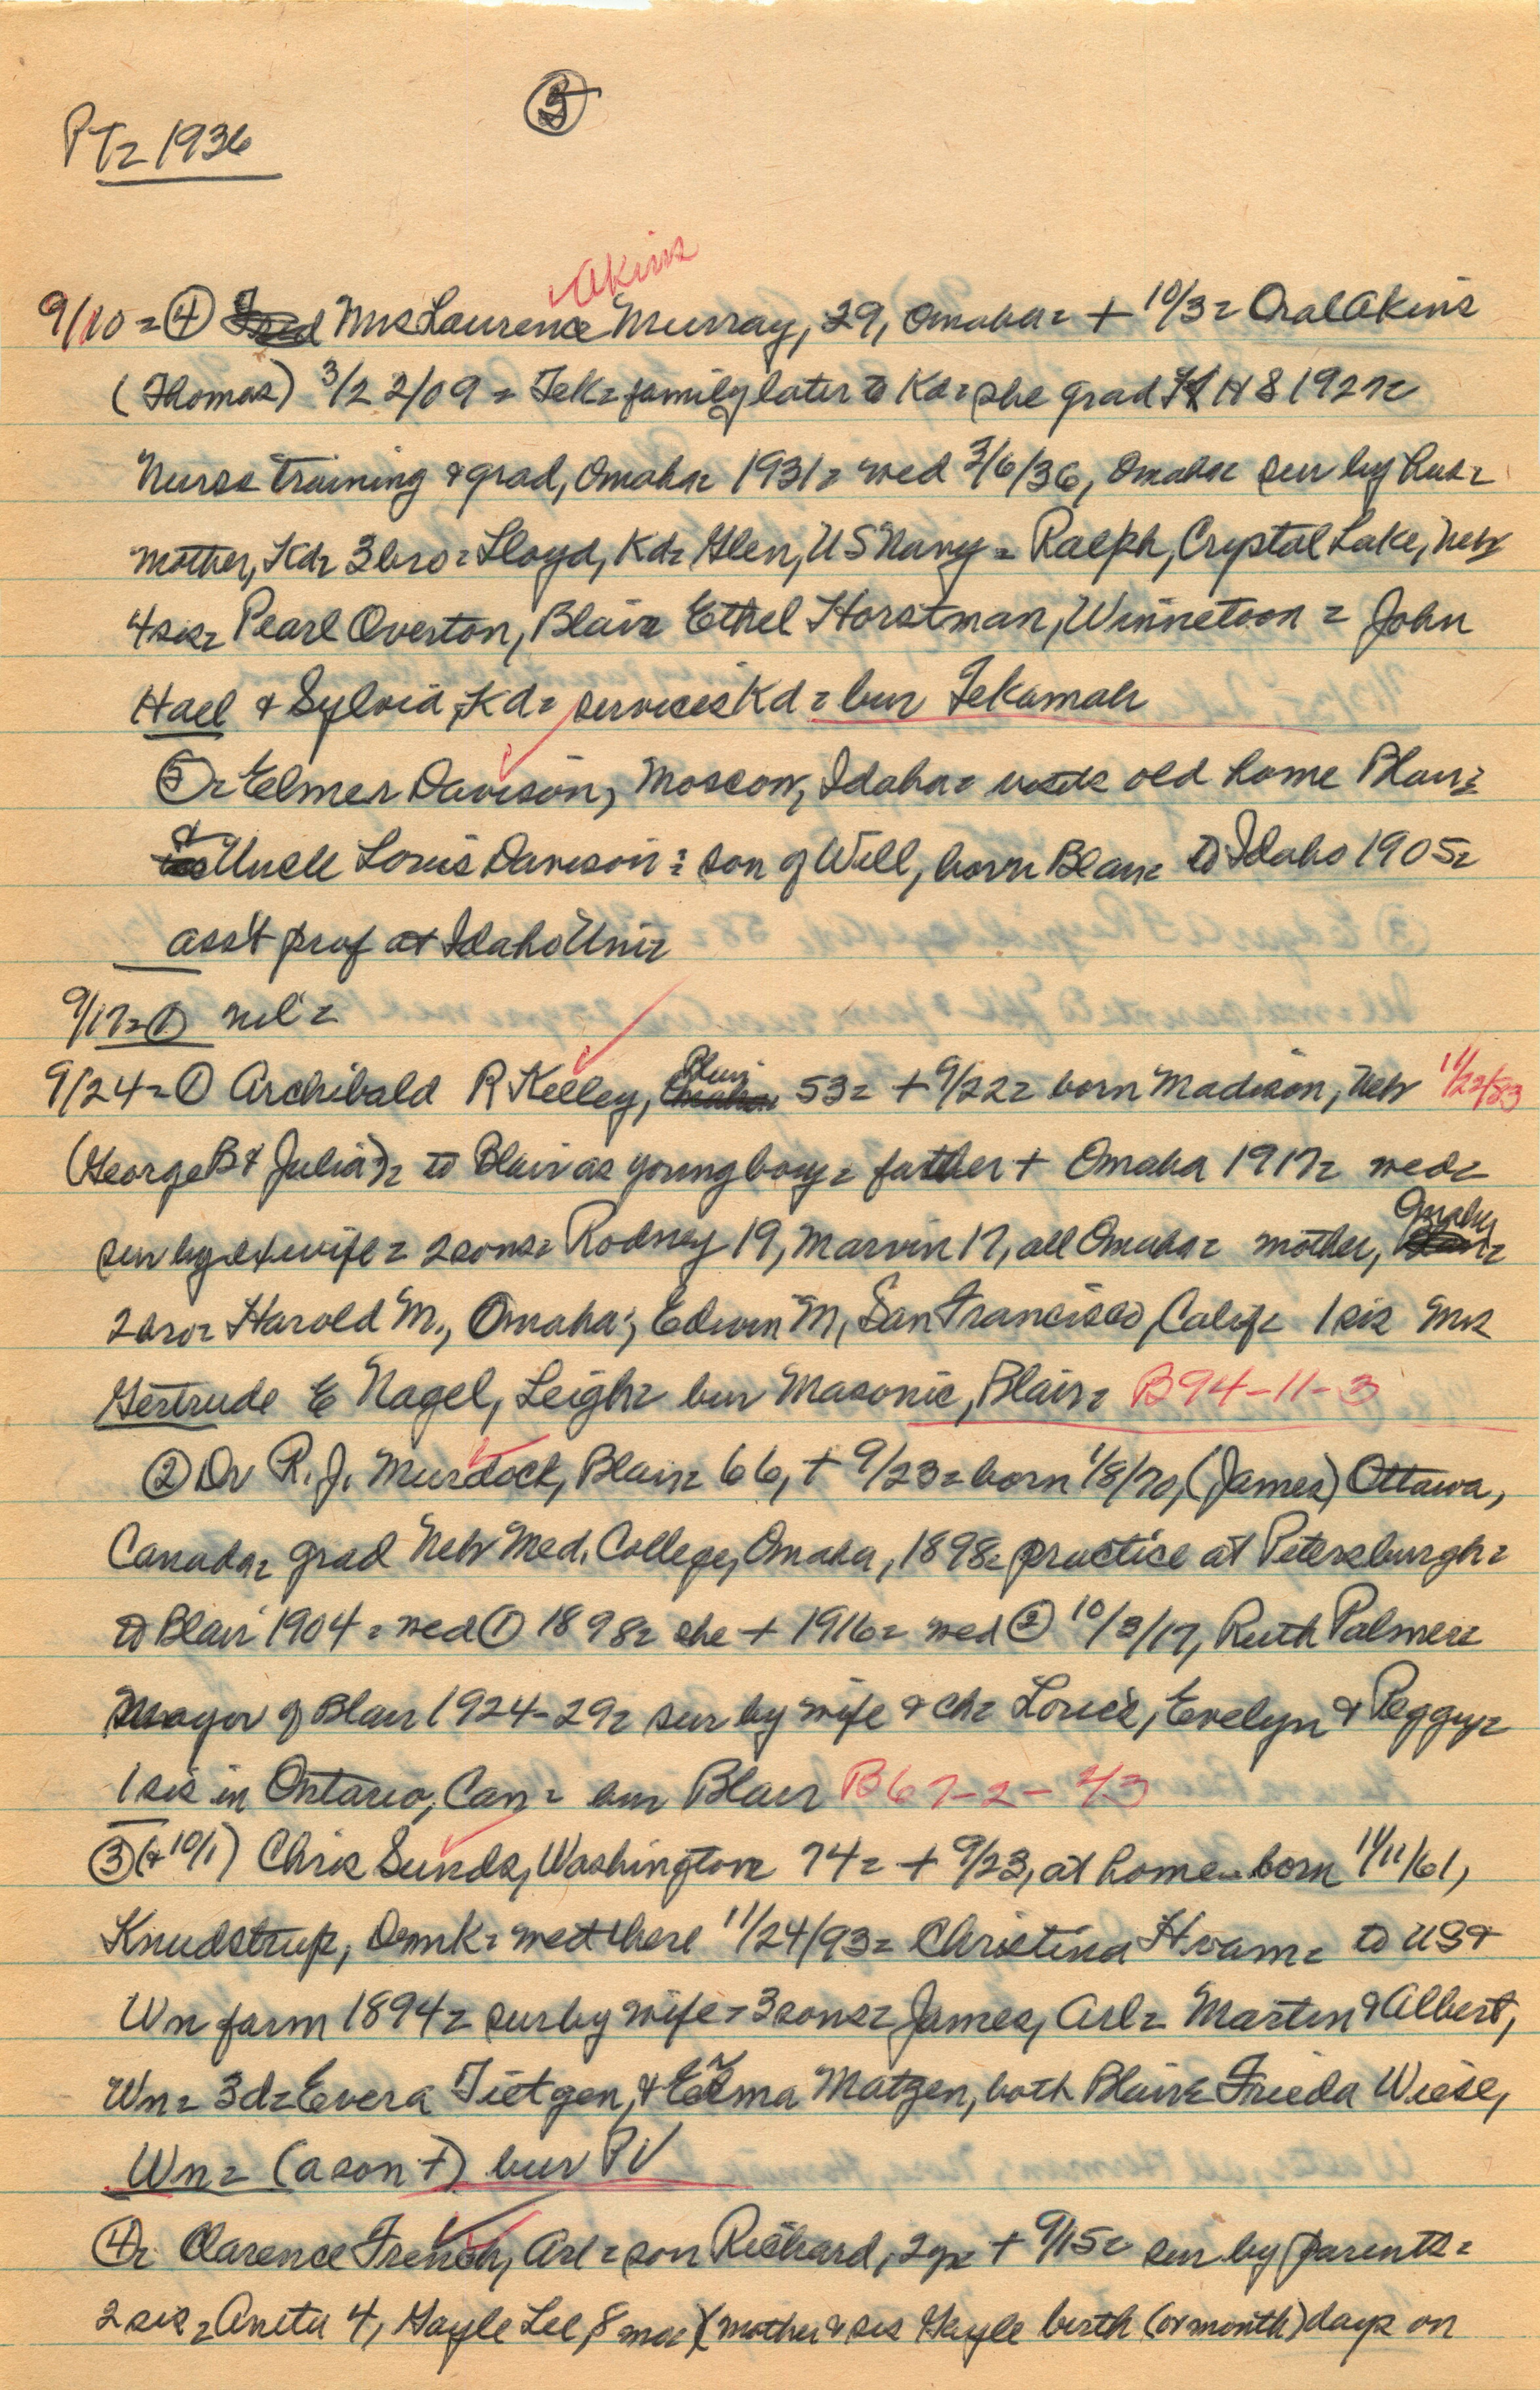 5
PT= 1936
Akins
9/10=④ Mrs Laurence Murray, 29, Omaha= + 10/3= Oral Akins
(Thomas) 3/22/09= Tek= family later to Kd= she grad HS 1927=
Nurse training & grad, Omaha 1931= wed 3/6/36, Omaha= sur by hus=
mother, Kd= 3 bro= Lloyd, Kd= Glen, US Navy= Ralph, Crystal Lake, Neb
4 sis= Pearl Overton, Blair= Ethel Horstman, Winnetoon= John
Hael & Sylvia, Kd= services Kd= bur Tekamah
⑤= Elmer Davison, Moscow, Idaho= visits old home Blair=
& Uncle Louis Davison= son of Will, born Blair= to Idaho 1905=
ass't prof at Idaho Uni=
9/17=① nil=
9/24=① Archibald R Kelley, Blair 53= + 9/22= born Madison, Neb 11/22/83
(George B & Julia)= to Blair as young boy= father + Omaha 1917= wed=
sur by exwife= 2 sons= Rodney 19, Marvin 17, all Omaha= mother, Omaha=
2 bro= Harold M., Omaha; Edwin M, San Francisco, Calif= 1 sis Mrs
Gertrude E Nagel, Leigh= bur Masonic, Blair= B94-11-3
② Dr R. J. Murdock, Blair= 66, + 9/23= born 1/8/70, (James) Ottawa,
Canada= grad Neb Med. College, Omaha, 1898= practice at Petersburgh=
to Blair 1904= wed ① 1898= she + 1916= wed ② 10/3/17, Ruth Palmer=
Mayor of Blair 1924-29= sur by wife & ch= Evelyn & Peggy=
1 sis in Ontario, Can= bur Blair B67-2-43
③ (& 10/1) Chris Sunds, Washington= 74= + 9/23, at home= born 11/11/61,
Knudstrup, Denmk= wed there 11/24/93= Christina Hvam= to US &
Wn farm 1894= sur by wife= 3 sons= James, Arl= Martin & Albert,
Wn= 3d= Evera Tietgen, & Erma Matzen, both Blair= Frieda Wiese,
Wn= (a son +) bur PV
④= Clarence French, Arl= son Richard, 2yr= + 9/15= sur by parents=
2 sis= Aneta 4, Gayle Lee, 8 mos) (mother & sis Gayle birth (or month) days on